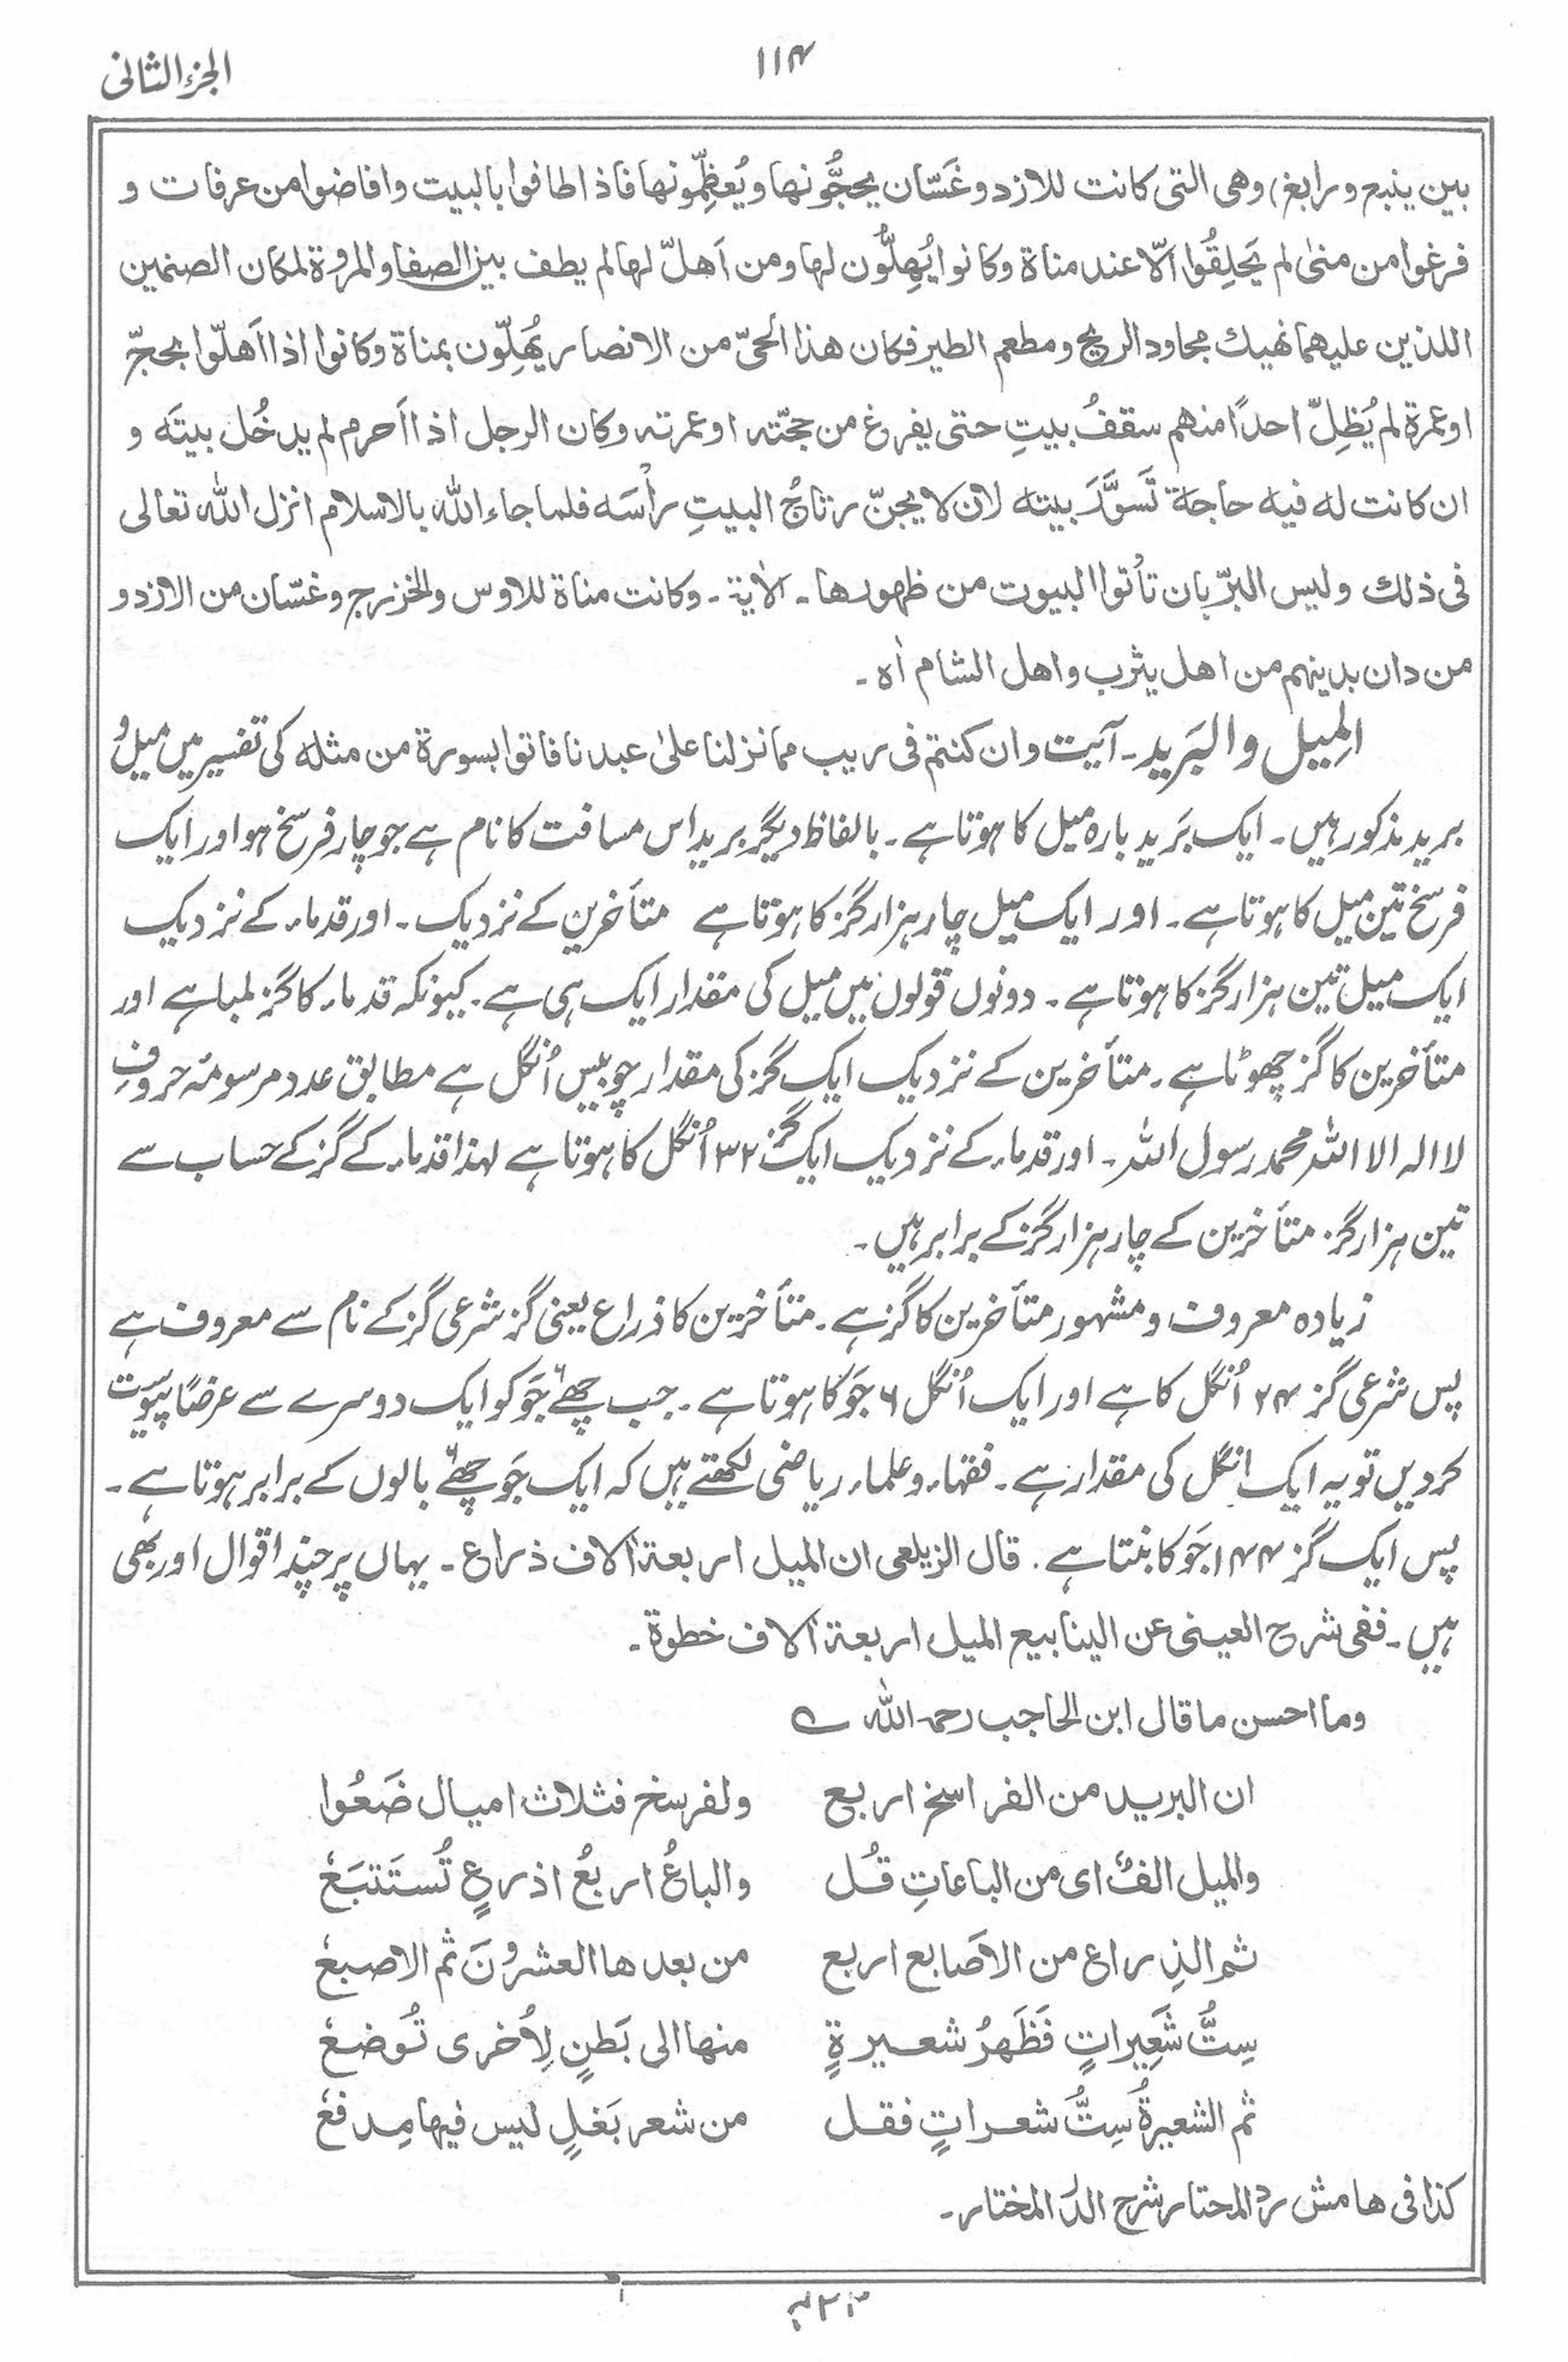 ۱۱۴
الجزء الثانی
بین ینبع و رابغ) وهی التی کانت للازد وغَسّان یحجُّونها ویُعظِّمونها فاذا طافوا بالبیت وافاضوا من عرفات و
فرغوا من منیٰ لم یَحلِقُوا الّا عند مناة وکانوا یُهِلُّون لها ومن اَهلّ لها لم یطف بین الصفا والمروة لمکان الصنمین
اللذین علیهما نهیك مجاود الریح ومطعم الطیر فکان هذا الحیّ من الانصار یُهِلّون بمناة وکانوا اذا اَهلّوا بحجّ
او عمرة لم یُظِلّ احدًا منهم سقفُ بیتِ حتی یفرغ من حجّته او عمرته وکان الرجل اذا اَحرم لم یدخُل بیتَه و
ان کانت له فیه حاجة تَسوَّرَ بیته لان لا یجنّ رتاجُ البیتِ رأسَه فلما جاء الله بالاسلام انزل الله تعالی
فی ذلك ولیس البرّ بان تأتوا البیوت من ظهورها ۔ الآیة ۔ وکانت مناة للاوس والخزرج وغسّان من الازد و
من دان بدینهم من اهل یثرب واهل الشام اٰه ۔
المِیل والبَرِید ۔ آیت وان کنتم فی ریب مما نزلنا علیٰ عبدنا فاتوا بسورة من مثله کی تفسیر میں میل و
برید مذکور ہیں ۔ ایک بَرید بارہ میل کا ہوتا ہے ۔ بالفاظ دیگر برید اس مسافت کا نام ہے جو چار فرسخ ہو اور ایک
فرسخ تین میل کا ہوتا ہے ۔ اور ایک میل چار ہزار گز کا ہوتا ہے متأخرین کے نزدیک ۔ اور قدماء کے نزدیک
ایک میل تین ہزار گز کا ہوتا ہے ۔ دونوں قولوں میں میل کی مقدار ایک ہی ہے ۔ کیونکہ قدماء کا گز لمبا ہے اور
متأخرین کا گز چھوٹا ہے ۔ متأخرین کے نزدیک ایک گز کی مقدار چوبیس اُنگل ہے مطابق عدد مرسومۂ حروفِ
لا الہ الا اللہ محمد رسول اللہ ۔ اور قدماء کے نزدیک ایک گز ۳۲ اُنگل کا ہوتا ہے لہذا قدماء کے گز کے حساب سے
تین ہزار گز متأخرین کے چار ہزار گز کے برابر ہیں ۔
زیادہ معروف و مشہور متأخرین کا گز ہے ۔ متأخرین کا ذراع یعنی گز شرعی گز کے نام سے معروف ہے
پس شرعی گز ۲۴ اُنگل کا ہے اور ایک اُنگل ۶ جَو کا ہوتا ہے ۔ جب چھے جَو کو ایک دوسرے سے عرضًا پیَوست
کر دیں تو یہ ایک انگل کی مقدار ہے ۔ فقہاء و علماء ریاضی لکھتے ہیں کہ ایک جَو چھے بالوں کے برابر ہوتا ہے ۔
پس ایک گز ۱۴۴ جَو کا بنتا ہے ۔ قال الزیلعی ان المیل اربعة اٰلاف ذراع ۔ یہاں پر چند اقوال اور بھی
ہیں ۔ ففی شرح العینی عن الینابیع المیل اربعة اٰلاف خطوة ۔
وما احسن ما قال ابن الحاجب رحمہ اللہ ؎
ان البرید من الفراسخ اربع ولفرسخ فثلاث امیال ضَعُوا
والمیل الفٌ ای من الباعاتِ قُل والباعُ اربعُ اذرعٍ تُستَتبَعٗ
ثم الذِراع من الاصَابع اربع من بعدها العشرونَ ثم الاصبعٗ
سِتُّ شَعِیراتٍ فَظَهرُ شعیرةٍ منها الی بَطنٍ لِاُخری تُوضعٗ
ثم الشعیرةُ سِتُّ شعراتٍ فقل من شعر بَغلٍ لیس فیها مِدفعٗ
کذا فی هامش رد المحتار شرح الدر المختار ۔